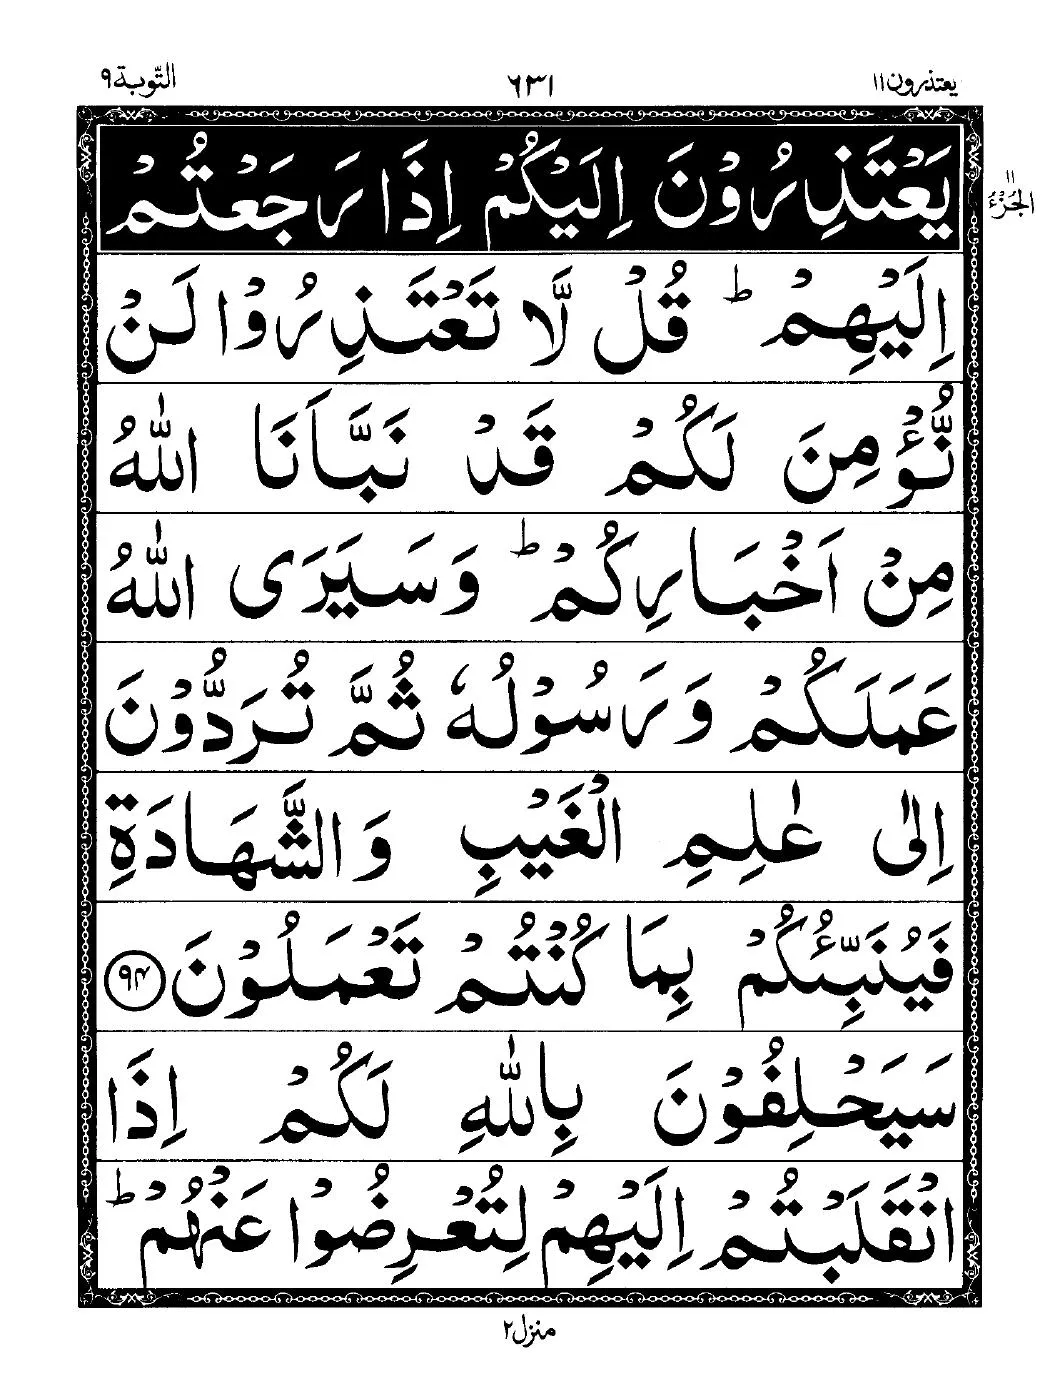 یعتذرون ۱۱
٦٣١
التّوبة ۹
۱۱
الجُزْءُ
يَعْتَذِرُوْنَ اِلَيْكُمْ اِذَا رَجَعْتُمْ
اِلَيْهِمْ ؕ قُلْ لَّا تَعْتَذِرُوْا لَنْ
نُّؤْمِنَ لَكُمْ قَدْ نَبَّاَنَا اللّٰهُ
مِنْ اَخْبَارِكُمْ ؕ وَسَيَرَى اللّٰهُ
عَمَلَكُمْ وَرَسُوْلُهٗ ثُمَّ تُرَدُّوْنَ
اِلٰى عٰلِمِ الْغَيْبِ وَالشَّهَادَةِ
فَيُنَبِّئُكُمْ بِمَا كُنْتُمْ تَعْمَلُوْنَ ۹۴
سَيَحْلِفُوْنَ بِاللّٰهِ لَكُمْ اِذَا
انْقَلَبْتُمْ اِلَيْهِمْ لِتُعْرِضُوْا عَنْهُمْ ؕ
منزل ۲